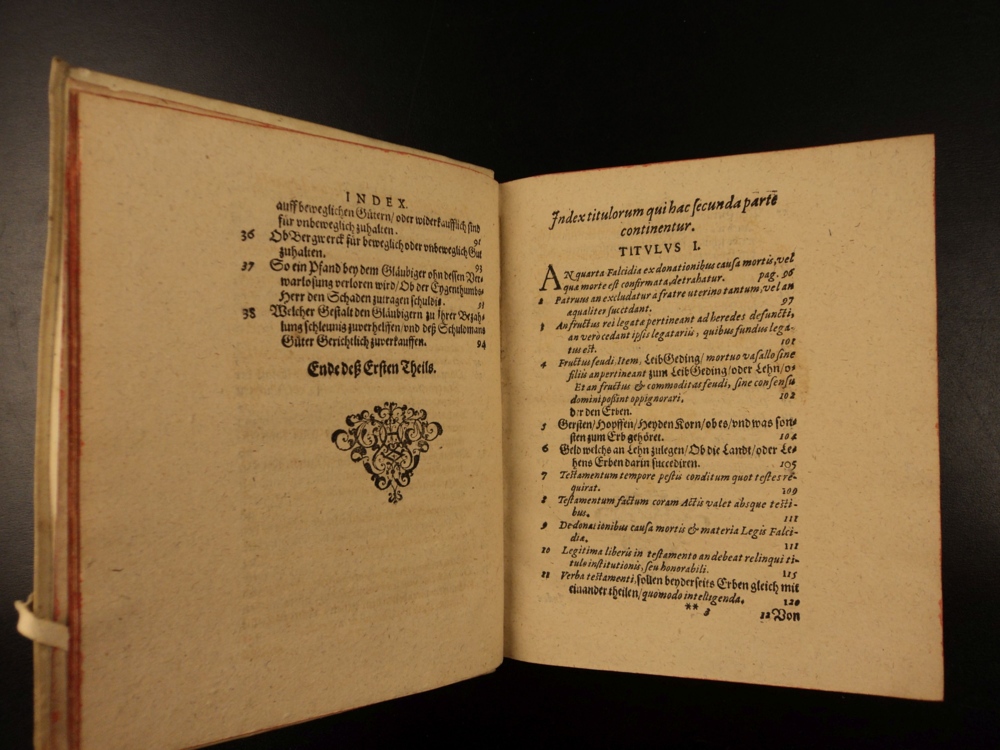 INDEX.
auff beweglichen Gütern/ oder widerkaufflich sind
für vnbeweglich zuhalten. 91
36 Ob Bergwerck für beweglich oder vnbeweglich Gut
zuhalten. 93
37 So ein Pfand bey dem Gläubiger ohn dessen Ver-
warlosung verloren wird/ Ob der Eygenthumbs-
Herr den Schaden zutragen schuldig.
38 Welcher Gestalt den Gläubigern zu Ihrer Bezah-
lung schleunig zuverhelffen/ vnd deß Schuldmans
Güter Gerichtlich zuverkauffen. 94
Ende deß Ersten Theils.
Index titulorum qui hac secunda parte
continentur.
TITVLVS I.
AN quarta Falcidia ex donationibus causa mortis, vel
qua morte est confirmata, detrahatur. pag. 96
2 Patruus an excludatur a fratre uterino tantum, vel an
æqualiter succedant. 97
3 An fructus rei legatæ pertineant ad heredes defuncti,
an vero cedant ipsis legatariis, quibus fundus lega-
tus est. 101
4 Fructus feudi, Item, LeibGeding/ mortuo vasallo sine
filiis an pertineant zum LeibGeding/ oder Lehn/ o-
Et an fructus & commoditas feudi, sine consensu
domini possint oppignorari. 102
der den Erben.
5 Gersten/ Hopffen/ Heyden Korn/ ob es/ vnd was son-
sten zum Erb gehöret. 104
6 Geld welchs an Lehn zulegen/ Ob die Landt/ oder Le-
hens Erben darin succediren. 105
7 Testamentum tempore pestis conditum quot testes re-
quirat. 109
8 Testamentum factum coram Actis valet absque testi-
bus. 111
9 De donationibus causa mortis & materia Legis Falci-
diæ. 111
10 Legitima liberis in testamento an debeat relinqui ti-
tulo institutionis, seu honorabili. 115
11 Verba testamenti, sollen beyderseits Erben gleich mit
einander theilen/ quomodo intelligenda. 120
** 3
12 Von